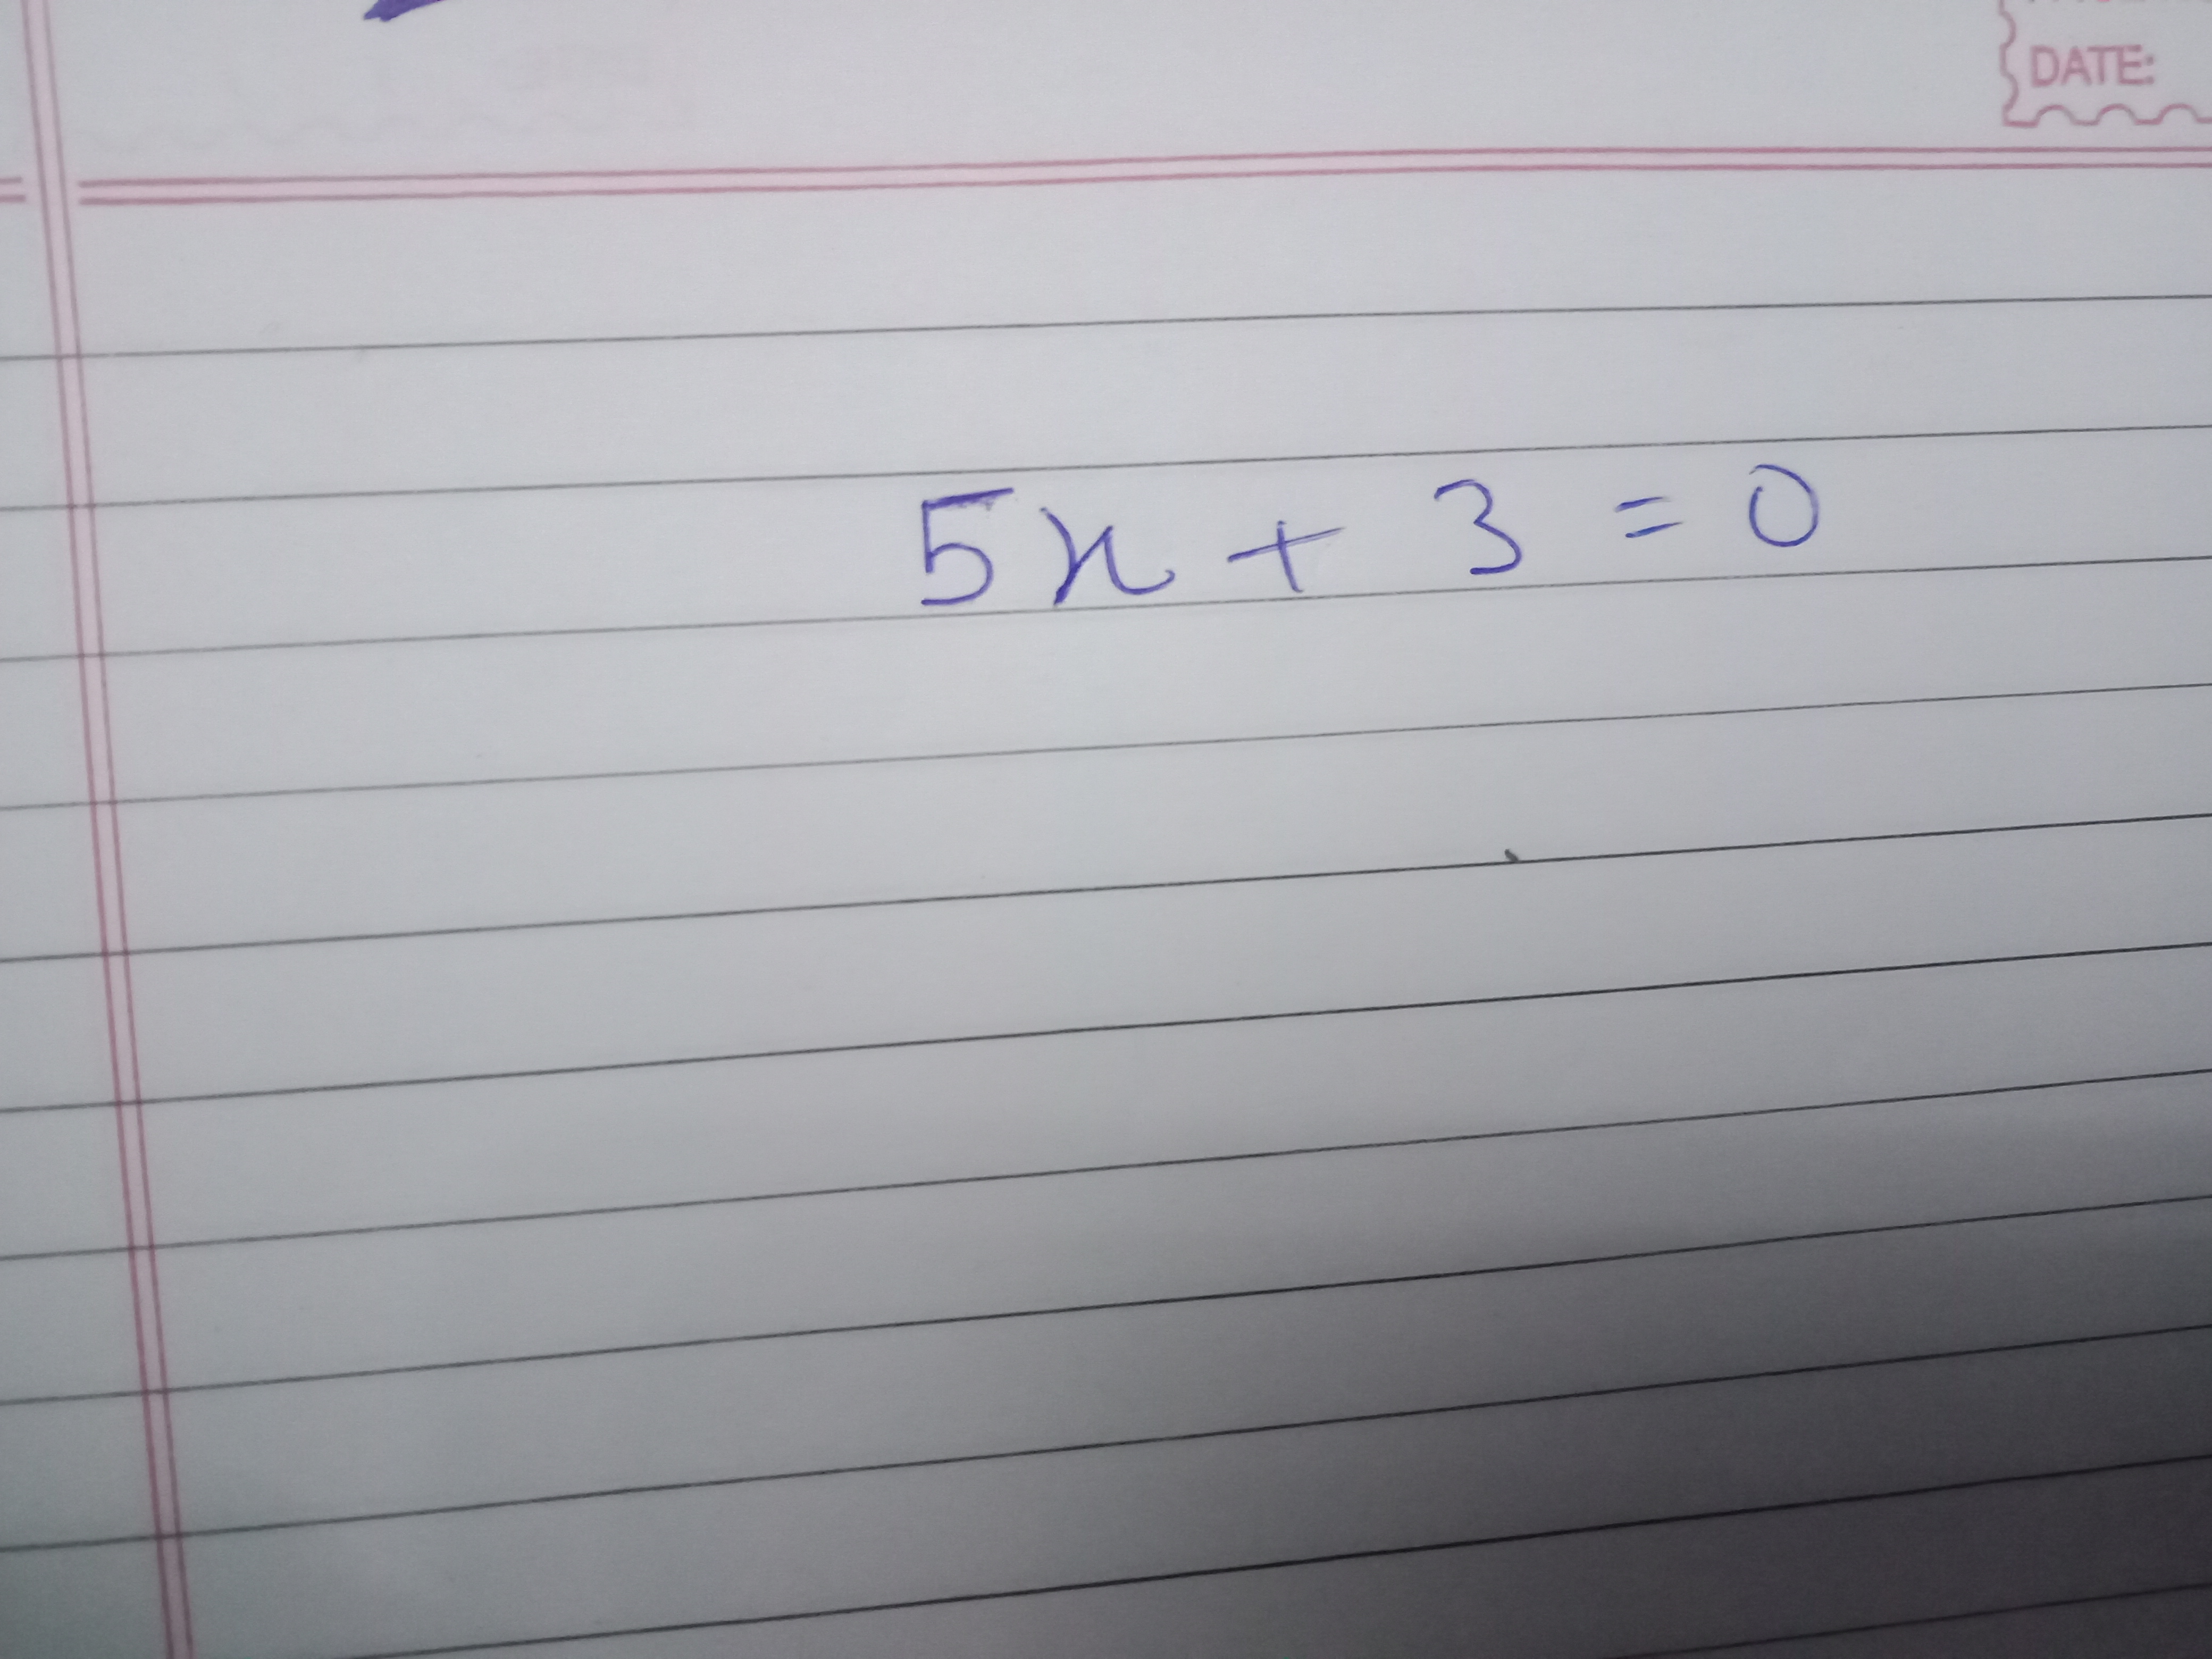 DATE:
5x + 3 = 0